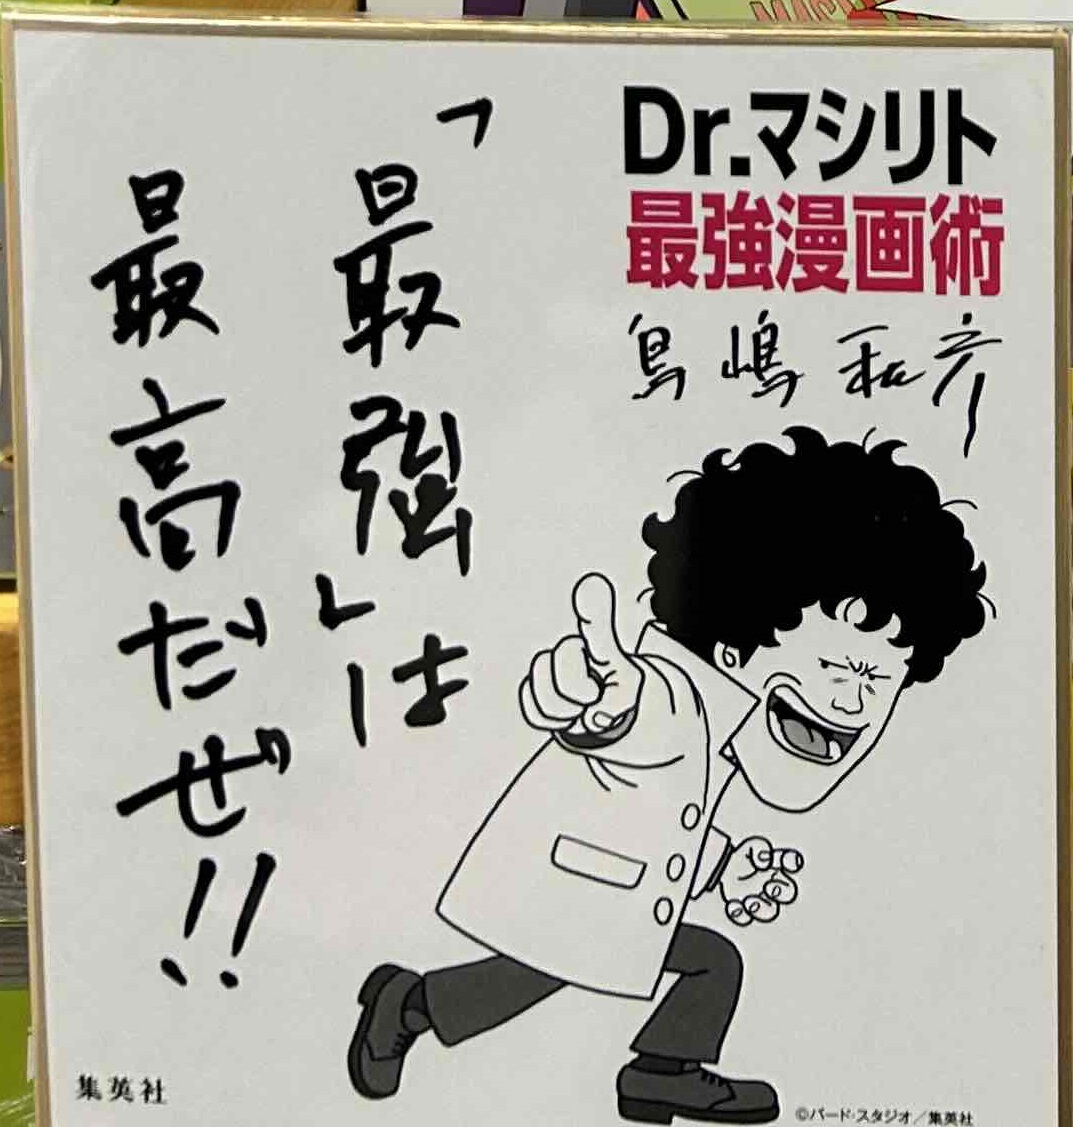 Dr.マシリト
最強漫画術
鳥嶋和彦
「最強」は
最高だぜ!!
集英社
©バード・スタジオ/集英社